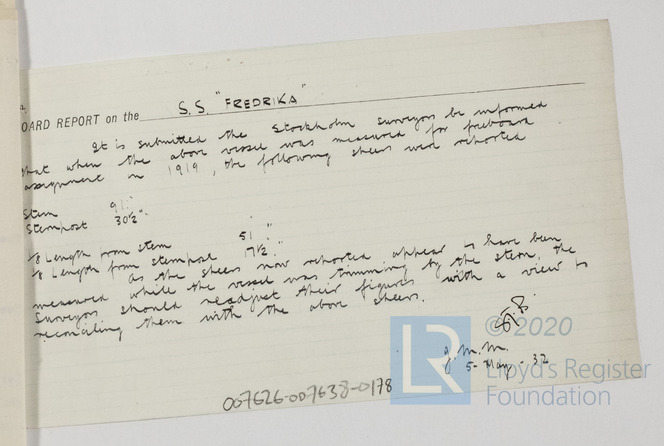 OARD REPORT on the S.S. "FREDRIKA"
It is submitted the Stockholm Surveyors be informed
that when the above vessel was measured for freeboard
assignment in 1919, the following sheers were reported
Stem 91".
Sternpost 30½".
⅛ Length from stem 51".
⅛ Length from sternpost 7½".
As the sheers now reported appear to have been
measured while the vessel was trimming by the stern, the
Surveyors should readjust their figures with a view to
reconciling them with the above sheers.
J.M.M.
5-May-32
007626-007638-0178
LR
© 2020
Lloyd's Register
Foundation